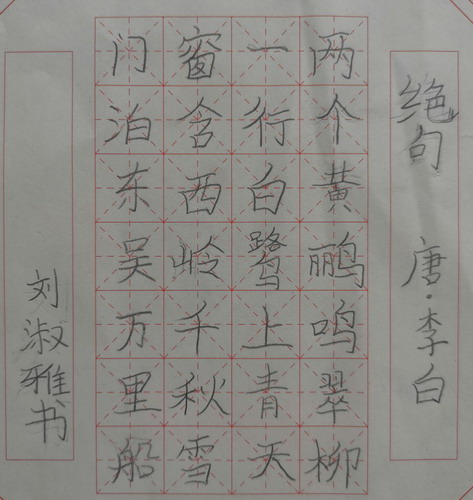 绝句
唐·李白
两个黄鹂鸣翠柳
一行白鹭上青天
窗含西岭千秋雪
门泊东吴万里船
刘淑雅书